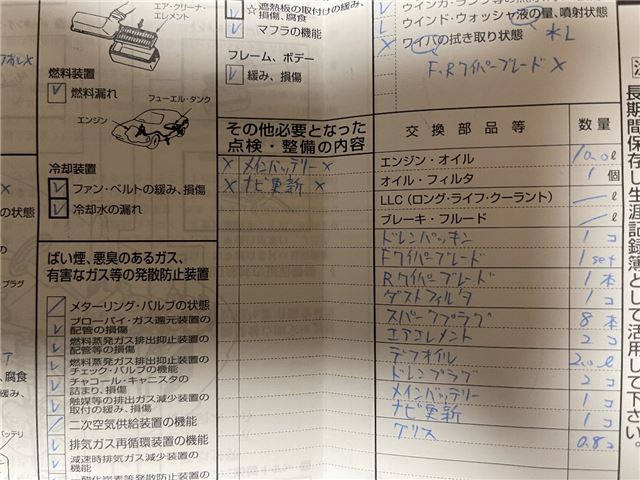 エア・クリーナ
エレメント
燃料装置
✓ 燃料漏れ
フューエル・タンク
エンジン
冷却装置
✓ ファン・ベルトの緩み、損傷
✓ 冷却水の漏れ
ばい煙、悪臭のあるガス、
有害なガス等の発散防止装置
メターリング・バルブの状態
✓ ブローバイ・ガス還元装置の
配管の損傷
✓ 燃料蒸発ガス排出抑止装置の
配管等の損傷
✓ 燃料蒸発ガス排出抑止装置の
チェック・バルブの機能
✓ チャコール・キャニスタの
詰まり、損傷
✓ 触媒等の排出ガス減少装置の
取付の緩み、損傷
二次空気供給装置の機能
✓ 排気ガス再循環装置の機能
✓ 減速時排気ガス減少装置の
機能
☆ 遮熱板の取付けの緩み、
損傷、腐食
✓ マフラの機能
フレーム、ボデー
✓ 緩み、損傷
その他必要となった
点検・整備の内容
× メインバッテリー ×
× ナビ更新 ×
✓ ウインド・ウォッシャ液の量、噴射状態
× ワイパの拭き取り状態
F、Rワイパーブレード×
交換部品等 数量
エンジン・オイル 10.0 ℓ
オイル・フィルタ 1 個
LLC(ロング・ライフ・クーラント) ℓ
ブレーキ・フルード ℓ
ドレンパッキン 1コ
Fワイパーブレード 1set
Rワイパーブレード 1本
ダストフィルタ 1コ
スパークプラグ 8本
エアエレメント 2コ
デフオイル 2.0ℓ
ドレンプラグ 2コ
メインバッテリー 1コ
ナビ更新 1コ
グリス 0.8コ
長期間保存し生涯記録簿として活用して下さい。